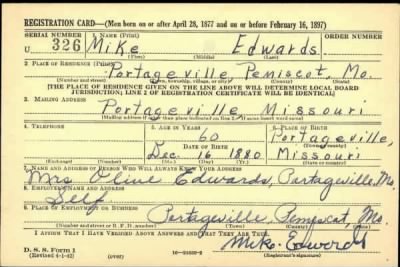 REGISTRATION CARD—(Men born on or after April 28, 1877 and on or before February 16, 1897)
SERIAL NUMBER 1. NAME (Print) ORDER NUMBER
U 326 Mike Edwards
(First) (Middle) (Last)
2. PLACE OF RESIDENCE (Print)
Portageville Pemiscot, Mo.
(Number and street) (Town, township, village, or city) (County) (State)
[THE PLACE OF RESIDENCE GIVEN ON THE LINE ABOVE WILL DETERMINE LOCAL BOARD
JURISDICTION; LINE 2 OF REGISTRATION CERTIFICATE WILL BE IDENTICAL]
3. MAILING ADDRESS
Portageville Missouri
[Mailing address if other than place indicated on line 2. If same insert word same]
4. TELEPHONE 5. AGE IN YEARS 6. PLACE OF BIRTH
60 Portageville,
DATE OF BIRTH (Town or county)
Dec. 16 1880 Missouri
(Exchange) (Number) (Mo.) (Day) (Yr.) (State or country)
7. NAME AND ADDRESS OF PERSON WHO WILL ALWAYS KNOW YOUR ADDRESS
Mrs Edwards, Portageville, Mo.
8. EMPLOYER'S NAME AND ADDRESS
Self
9. PLACE OF EMPLOYMENT OR BUSINESS
Portageville, Pemyscot, Mo.
(Number and street or R. F. D. number) (Town) (County) (State)
I AFFIRM THAT I HAVE VERIFIED ABOVE ANSWERS AND THAT THEY ARE TRUE.
Mike Edwards
D. S. S. Form 1
(Revised 4-1-42) (over) (Registrant's signature)